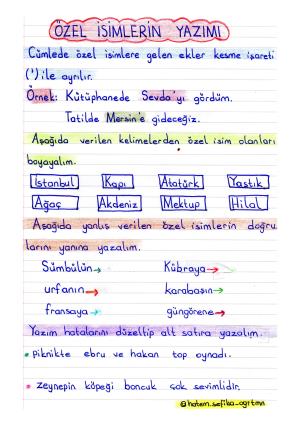 ÖZEL İSİMLERİN YAZIMI
Cümlede özel isimlere gelen ekler kesme işareti
(') ile ayrılır.
Örnek: Kütüphanede Sevda'yı gördüm.
Tatilde Mersin'e gideceğiz.
Aşağıda verilen kelimelerden özel isim olanları
boyayalım.
İstanbul Kapı Atatürk Yastık
Ağaç Akdeniz Mektup Hilal
Aşağıda yanlış verilen özel isimlerin doğru
larını yanına yazalım.
Sümbülün→ Kübraya→
urfanın→ karabaşın→
fransaya→ güngörene→
Yazım hatalarını düzeltip alt satıra yazalım.
• piknikte ebru ve hakan top oynadı.
• zeynepin köpeği boncuk çok sevimlidir.
@hatem.sefika_ogrtmn